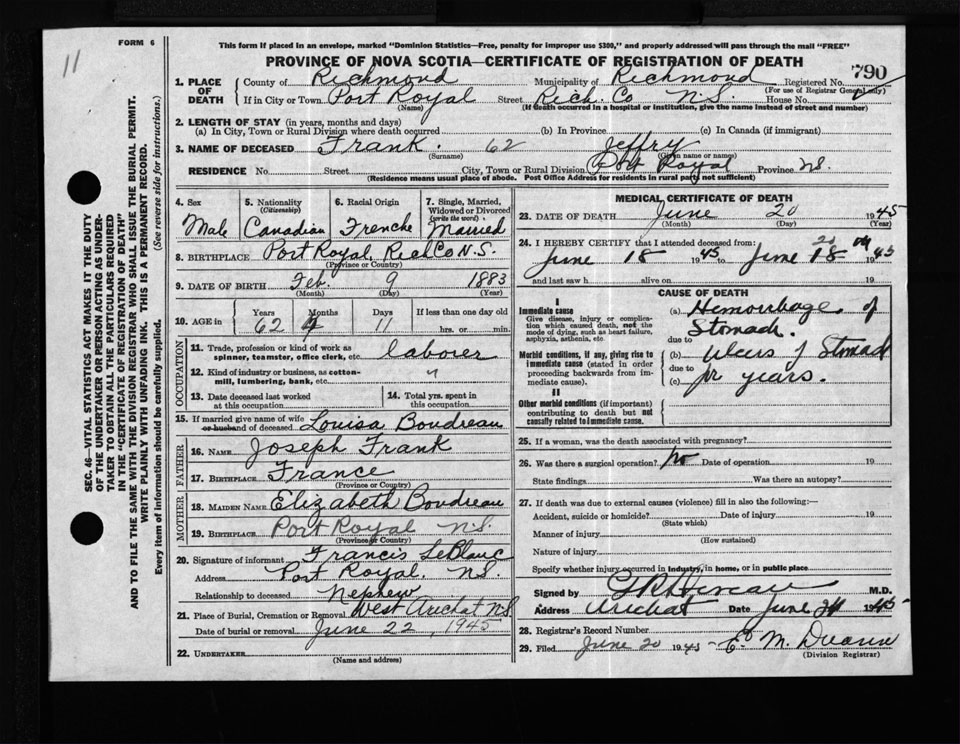 11
FORM 6
This form if placed in an envelope, marked "Dominion Statistics—Free, penalty for improper use $300," and properly addressed will pass through the mail "FREE"
PROVINCE OF NOVA SCOTIA—CERTIFICATE OF REGISTRATION OF DEATH
790
1. PLACE OF DEATH
County of Richmond Municipality of Richmond Registered No.
(For use of Registrar General only)
If in City or Town Port Royal Street Rich. Co N.S. House No.
(Name) (If death occurred in a hospital or institution, give the name instead of street and number)
2. LENGTH OF STAY (in years, months and days)
(a) In City, Town or Rural Division where death occurred (b) In Province (c) In Canada (if immigrant)
3. NAME OF DECEASED Frank. 62 Jeffry
(Surname) (Given name or names)
RESIDENCE No. Street City, Town or Rural Division Port Royal Province N.S.
(Residence means usual place of abode. Post Office Address for residents in rural parts not sufficient)
4. Sex
Male
5. Nationality
(Citizenship)
Canadian
6. Racial Origin
Frenche
7. Single, Married, Widowed or Divorced
(write the word)
Married
8. BIRTHPLACE Port Royal, Rich Co N.S.
(Province or Country)
9. DATE OF BIRTH Feb. 9 1883
(Month) (Day) (Year)
10. AGE in
Years Months Days If less than one day old
62 4 11 hrs. or min.
OCCUPATION
11. Trade, profession or kind of work as spinner, teamster, office clerk, etc. laborer
12. Kind of industry or business, as cotton-mill, lumbering, bank, etc. "
13. Date deceased last worked at this occupation
14. Total yrs. spent in this occupation
15. If married give name of wife or husband of deceased Louisa Boudreau
FATHER
16. NAME Joseph Frank
17. BIRTHPLACE France
(Province or Country)
MOTHER
18. MAIDEN NAME Elizabeth Boudreau
19. BIRTHPLACE Port Royal N.S.
(Province or Country)
20. Signature of informant Francis LeBlanc
Address Port Royal, N.S.
Relationship to deceased Nephew
21. Place of Burial, Cremation or Removal West Arichat N.S.
Date of burial or removal June 22, 1945
22. UNDERTAKER
(Name and address)
MEDICAL CERTIFICATE OF DEATH
23. DATE OF DEATH June 20 1945
(Month) (Day) (Year)
24. I HEREBY CERTIFY that I attended deceased from:
June 18 1945 to June 18 1945
and last saw h alive on 19
CAUSE OF DEATH
I
Immediate cause
Give disease, injury or complication which caused death, not the mode of dying, such as heart failure, asphyxia, asthenia, etc.
(a) Hemorrhage of
Stomach.
due to
Morbid conditions, if any, giving rise to immediate cause (stated in order proceeding backwards from immediate cause).
(b) Ulcers of Stomach
due to
(c) for years.
II
Other morbid conditions (if important) contributing to death but not causally related to immediate cause.
25. If a woman, was the death associated with pregnancy?
26. Was there a surgical operation? No Date of operation 19
State findings Was there an autopsy?
27. If death was due to external causes (violence) fill in also the following:—
Accident, suicide or homicide? Date of injury 19
(State which)
Manner of injury
(How sustained)
Nature of injury
Specify whether injury occurred in industry, in home, or in public place
Signed by M.D.
Address Arichat Date June 1945
28. Registrar's Record Number
29. Filed June 20 1945
(Division Registrar)
SEC. 46—VITAL STATISTICS ACT MAKES IT THE DUTY
OF THE UNDERTAKER OR PERSON ACTING AS UNDERTAKER TO OBTAIN ALL THE PARTICULARS REQUIRED
IN THE "CERTIFICATE OF REGISTRATION OF DEATH"
AND TO FILE THE SAME WITH THE DIVISION REGISTRAR WHO SHALL ISSUE THE BURIAL PERMIT.
WRITE PLAINLY WITH UNFADING INK. THIS IS A PERMANENT RECORD.
Every item of information should be carefully supplied. (See reverse side for instructions.)